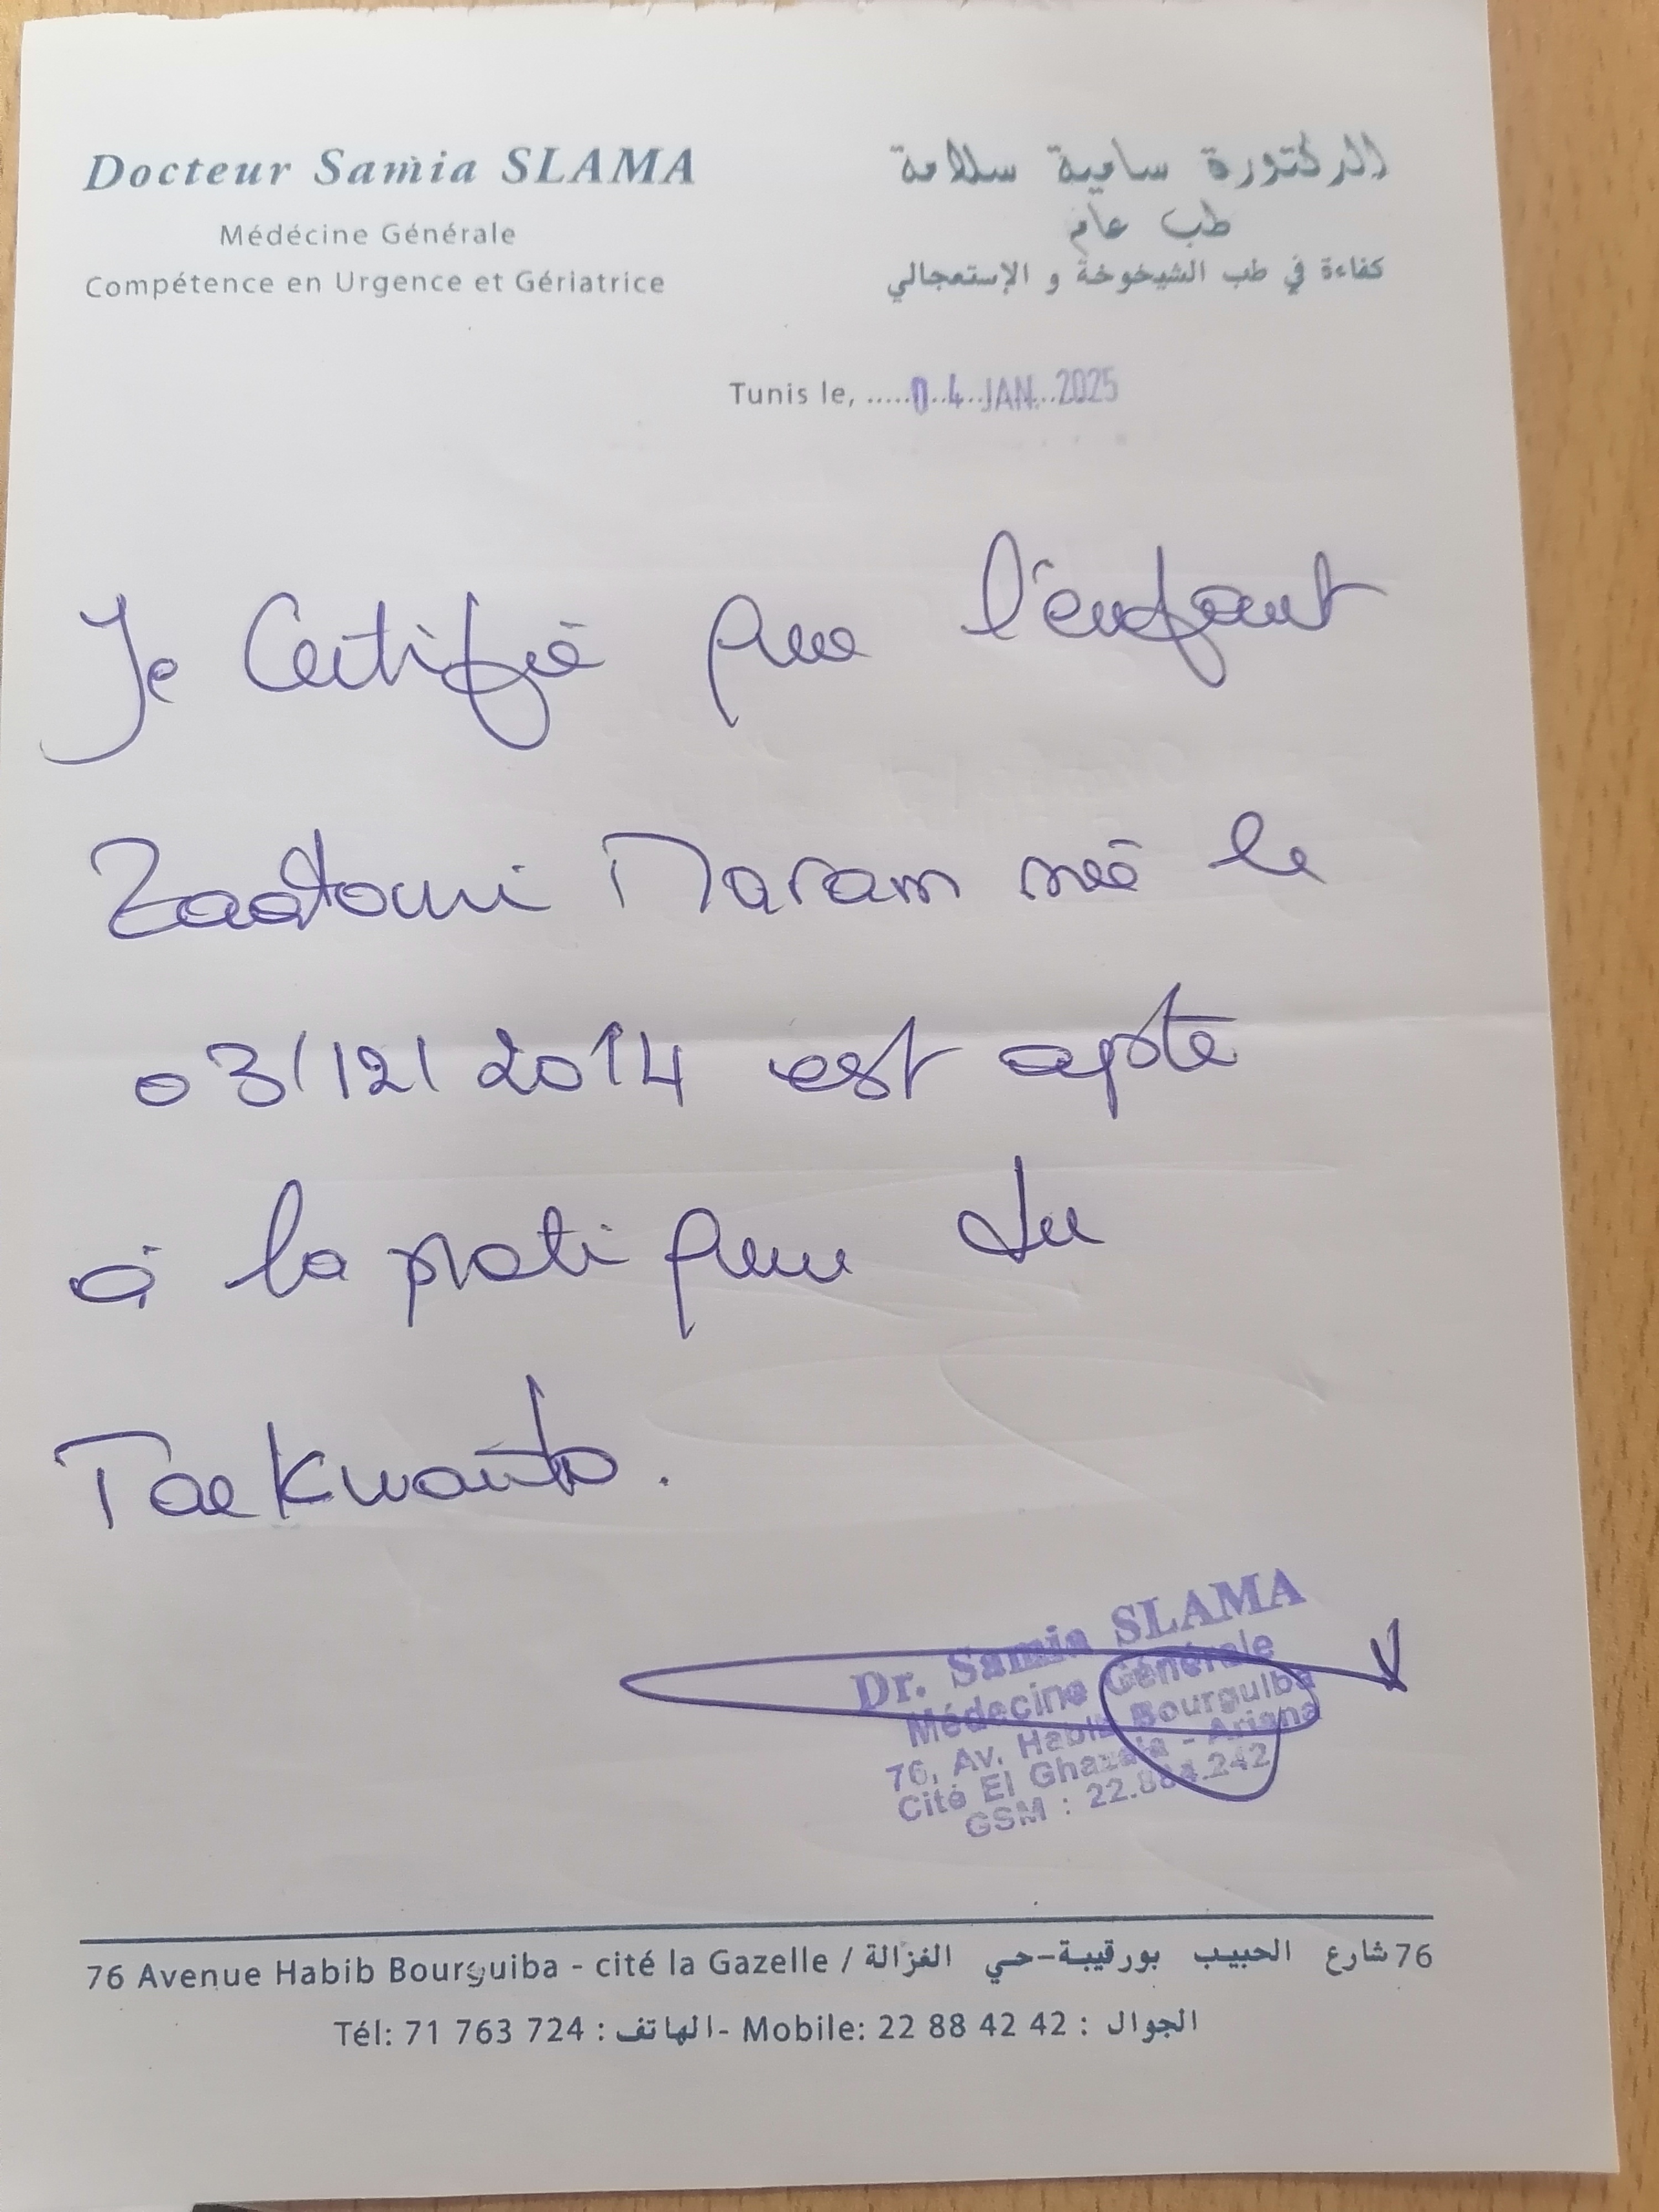 Docteur Samia SLAMA
Médécine Générale
Compétence en Urgence et Gériatrice
الدكتورة سامية سلامة
طب عام
كفاءة في طب الشيخوخة و الإستعجالي
Tunis le, .....04 JAN. 2025
Je Certifie que l'enfant
Zaatouri Maram né le
03/12/2014 est apte
à la pratique du
Taekwando.
Dr. Samia SLAMA
Médecine Générale
76, Av. Habib Bourguiba
Cité El Ghazala - Ariana
GSM : 22.884.242
76 Avenue Habib Bourguiba - cité la Gazelle / 76 شارع الحبيب بورقيبة-حي الغزالة
Tél: 71 763 724 : الهاتف - Mobile: 22 88 42 42 : الجوال